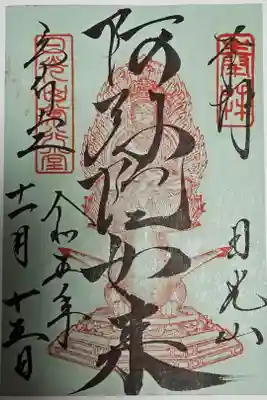 日光山
阿弥陀如来
令和五年
常行堂
十一月十五日